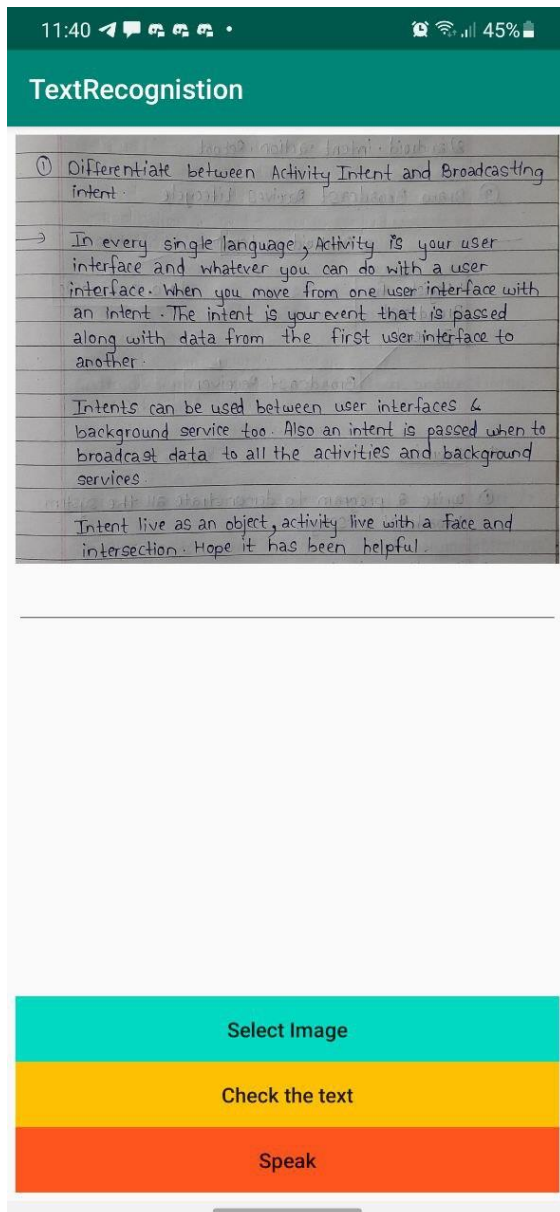 11:40 45%
TextRecognistion
① Differentiate between Activity Intent and Broadcasting
intent.
→ In every single language, Activity is your user
interface and whatever you can do with a user
interface. When you move from one user interface with
an intent. The intent is your event that is passed
along with data from the first user interface to
another.
Intents can be used between user interfaces &
background service too. Also an intent is passed when to
broadcast data to all the activities and background
services.
Intent live as an object, activity live with a face and
intersection. Hope it has been helpful.
Select Image
Check the text
Speak